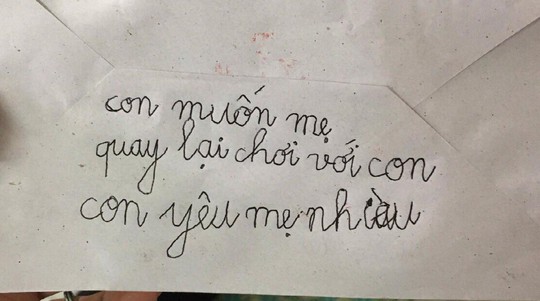 con muốn mẹ
quay lại chơi với con
con yêu mẹ nhiều